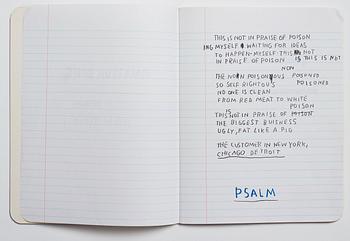 THIS IS NOT IN PRAISE OF POISON
ING MYSELF & WAITING FOR IDEAS
TO HAPPEN-MYSELF THIS NOT
IN PRAISE OF POISON IS THIS IS NOT
NON
THE NON POISONOUS POISONED
SO SELF RIGHTOUS POISONED
NO ONE IS CLEAN
FROM RED MEAT TO WHITE
POISON
THIS IS NOT IN PRAISE OF POISON
THE BIGGEST BUISNESS
UGLY, FAT LIKE A PIG
THE CUSTOMER IN NEW YORK,
CHICAGO DETROIT
PSALM